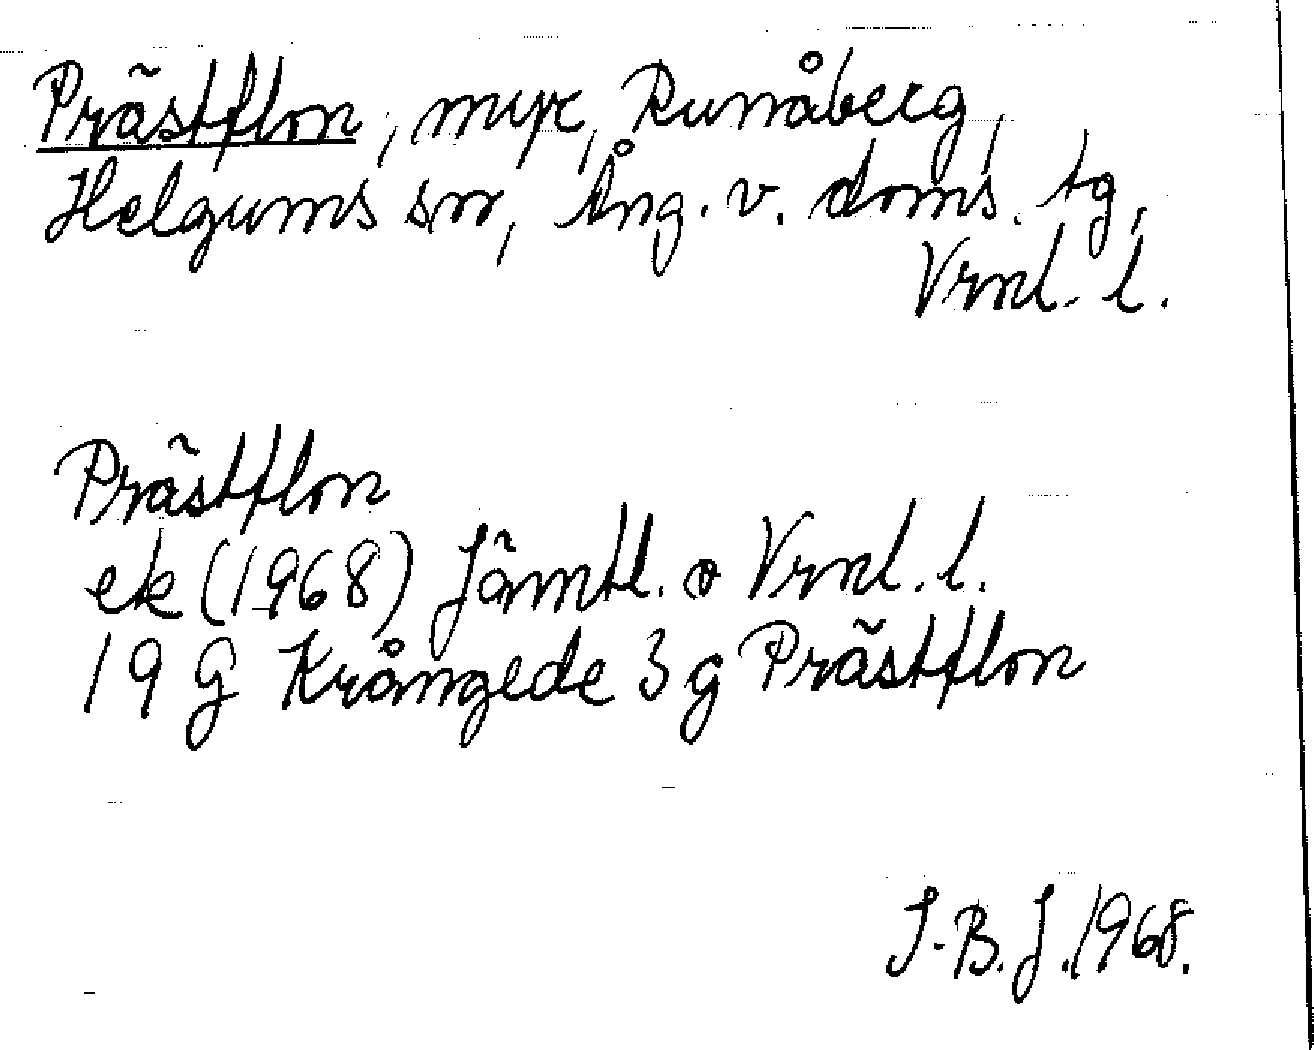 Prästflon, myr, Runåberg,
Helgums sn, Ång. v. doms. tg,
Vrnl. l.
Prästflon
ek (1968) Jämtl. o Vrnl. l.
19 G Krångede 3 g Prästflon
I-B. J. 1968.